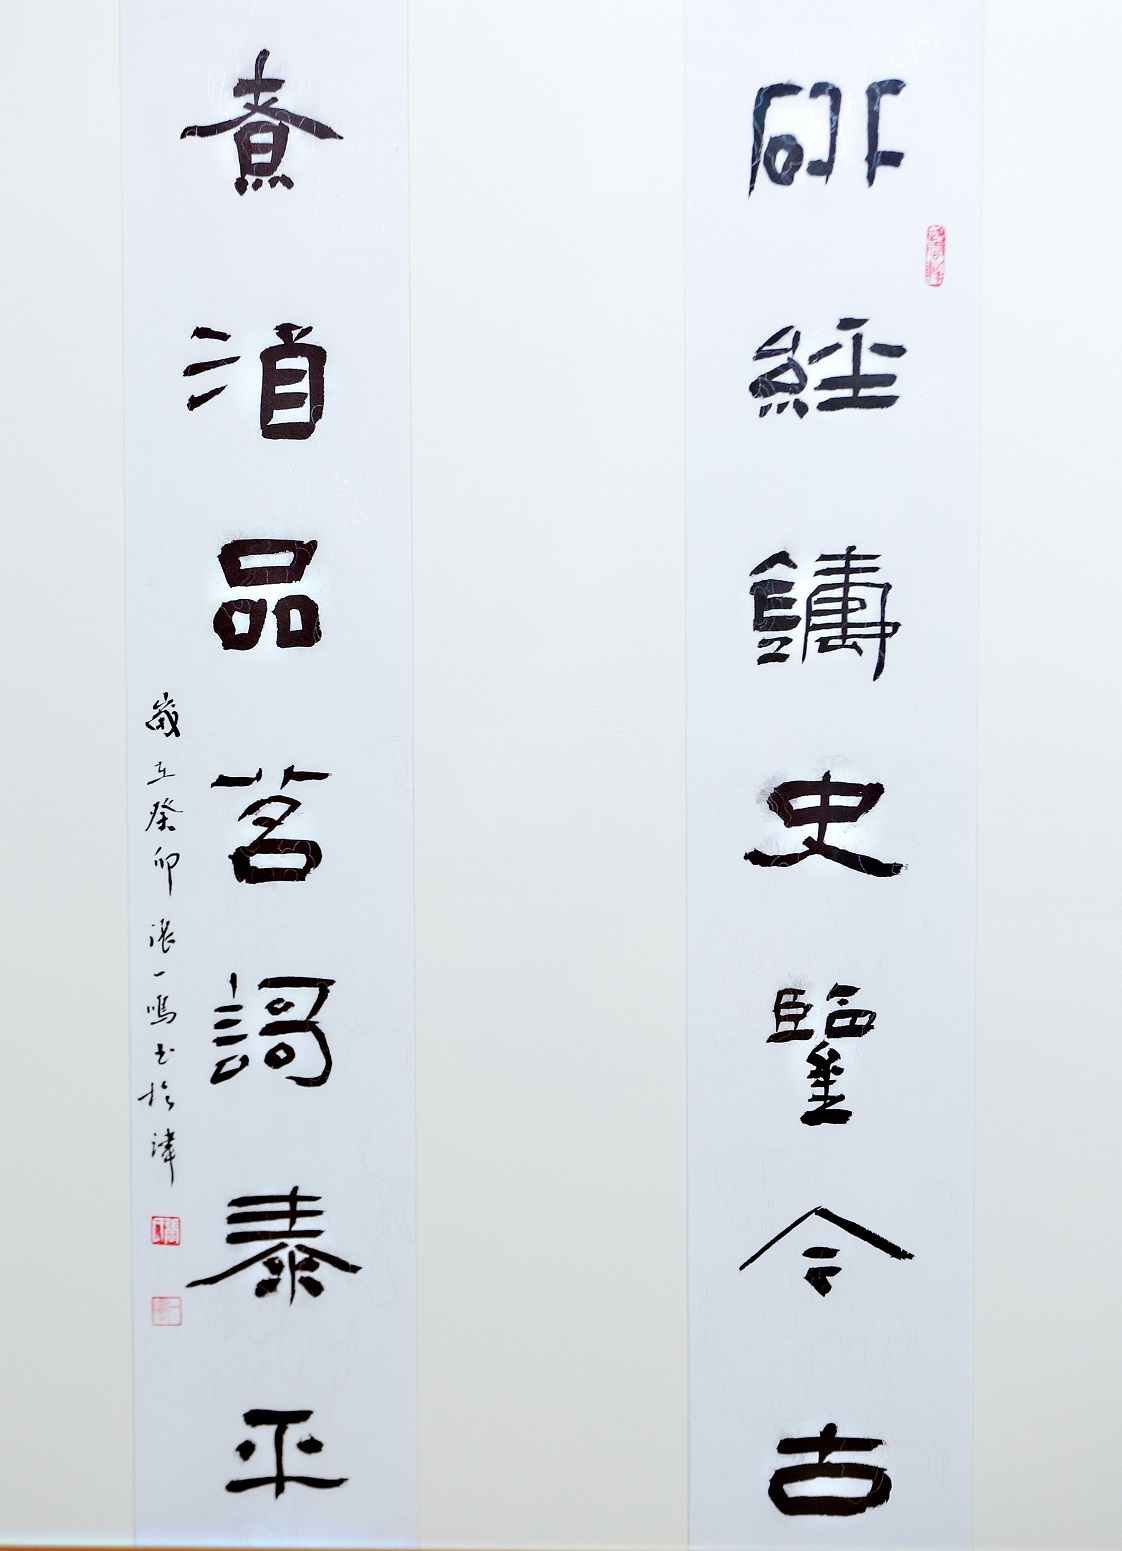 經鑄史鑒今古
煮酒品茗謌泰平
歲在癸卯張一鳴书於